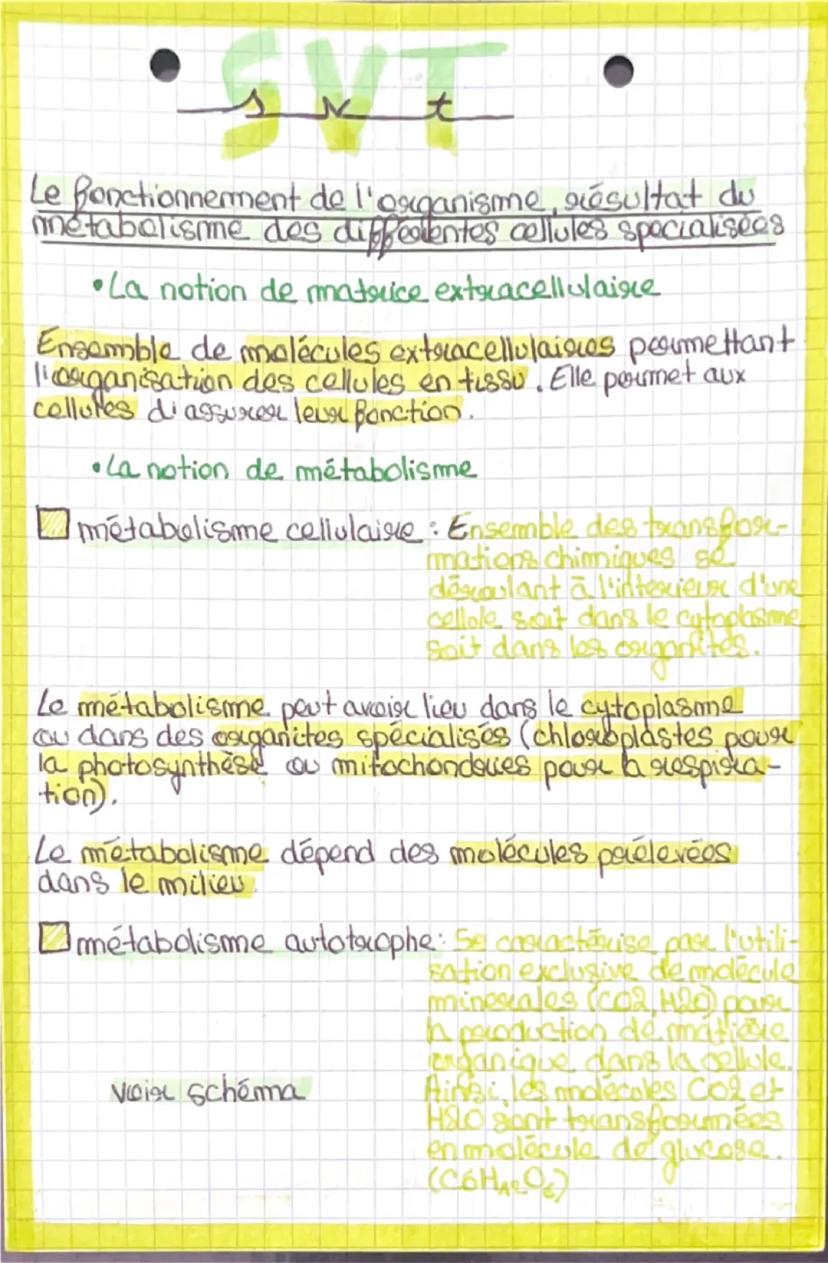 SVT
s v t
Le fonctionnement de l'organisme, résultat du
métabolisme des différentes cellules specialisées
•La notion de matrice extracellulaire
Ensemble de molécules extracellulaires permettant
l'organisation des cellules en tissu. Elle permet aux
cellules d'assurer leur fonction.
•La notion de métabolisme
métabolisme cellulaire : Ensemble des transfor-
mations chimiques se
déroulant à l'interieur d'une
cellule soit dans le cytoplasme
soit dans les organites.
Le métabolisme peut avoir lieu dans le cytoplasme
ou dans des organites spécialisés (chloroplastes pour
la photosynthèse ou mitochondries pour la respira-
tion).
Le métabolisme dépend des molécules prélevées
dans le milieu
métabolisme autotrophe: Se caractérise par l'utili-
sation exclusive de molécule
minerales (CO2, H2O) pour
la production de matière
organique dans la cellule.
Ainsi, les molécules CO2 et
voir schéma
H2O sont transformées
en molécule de glucose.
(C6H12O6)